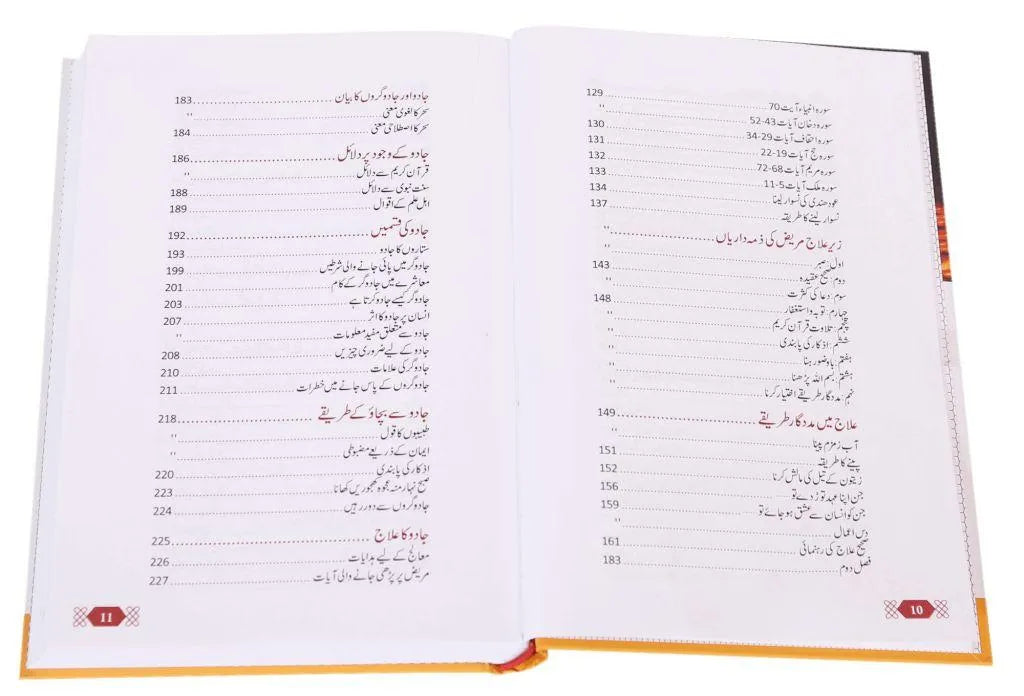 سورہ انبیاء آیت 70 129
سورہ دخان آیات 43-52 "
سورہ احقاف آیات 29-34 130
سورہ حج آیات 19-22 131
سورہ مریم آیات 68-72 132
سورہ ملک آیات 5-11 133
عود ھندی کی نسوار لینا 134
نسوار لینے کا طریقہ 137
زیر علاج مریض کی ذمہ داریاں "
اول: صبر "
دوم: صحیح عقیدہ 143
سوم: دعا کی کثرت "
چہارم: توبہ و استغفار 148
پنجم: تلاوت قرآن کریم "
ششم: اذکار کی پابندی "
ہفتم: باوضو رہنا "
ہشتم: بسم اللہ پڑھنا "
نہم: مددگار طریقے اختیار کرنا "
علاج میں مددگار طریقے 149
آب زمزم پینا "
پینے کا طریقہ 151
زیتون کے تیل کی مالش کرنا 152
جن اپنا عہد توڑ دے تو 156
جن کو انسان سے عشق ہو جائے تو 159
دس اعمال "
صحیح علاج کی رہنمائی 161
فصل دوم 183
10
جادو اور جادوگروں کا بیان 183
سحر کا لغوی معنی "
سحر کا اصطلاحی معنی 184
جادو کے وجود پر دلائل 186
قرآن کریم سے دلائل "
سنت نبوی سے دلائل 188
اہل علم کے اقوال 189
جادو کی قسمیں 192
ستاروں کا جادو 193
جادوگر میں پائی جانے والی شرطیں 199
معاشرے میں جادوگر کے کام 201
جادوگر کیسے جادو کرتا ہے 203
انسان پر جادو کا اثر 207
جادو سے متعلق مفید معلومات "
جادو کے لیے ضروری چیزیں 208
جادوگر کی علامات 210
جادوگروں کے پاس جانے میں خطرات 211
جادو سے بچاؤ کے طریقے 218
طبیبوں کا قول "
ایمان کے ذریعے مضبوطی "
اذکار کی پابندی 220
صبح نہار منہ عجوہ کھجوریں کھانا 223
جادوگروں سے دور رہیں 224
جادو کا علاج 225
معالج کے لیے ہدایات 226
مریض پر پڑھی جانے والی آیات 227
11